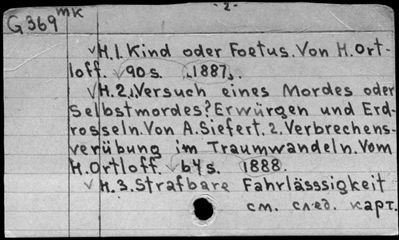 -2-
G369 mk
H.1. Kind oder Foetus. Von H. Ort-
loff. 90 s. 1887.
H.2. 1. Versuch eines Mordes oder
Selbstmordes? Erwürgen und Erd-
rosseln. Von A. Siefert. 2. Verbrechens-
verübung im Traumwandeln. Vom
H. Ortloff. 64 s. 1888.
H.3. Strafbare Fahrlässsigkeit
см. след. карт.